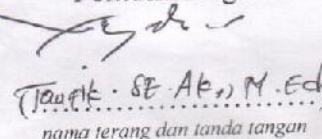 (Taufik. SE. Ak., M. Ed
nama terang dan tanda tangan